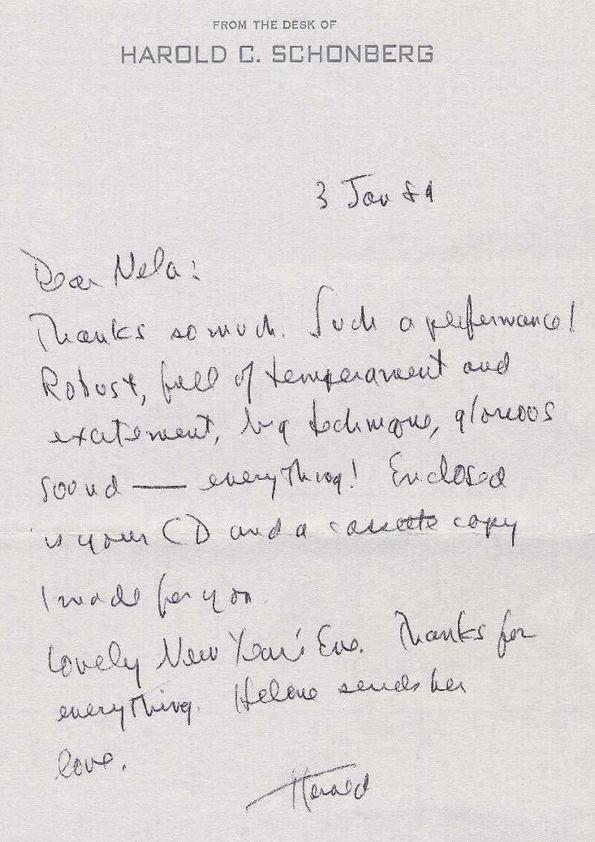 FROM THE DESK OF
HAROLD C. SCHONBERG
3 Jan 89
Dear Nela:
Thanks so much. Such a performance!
Robust, full of temperament and
excitement, big technique, glorious
sound — everything! Enclosed
is your CD and a cassette copy
I made for you
Lovely New Year's Eve. Thanks for
everything. Helene sends her
love.
Harold